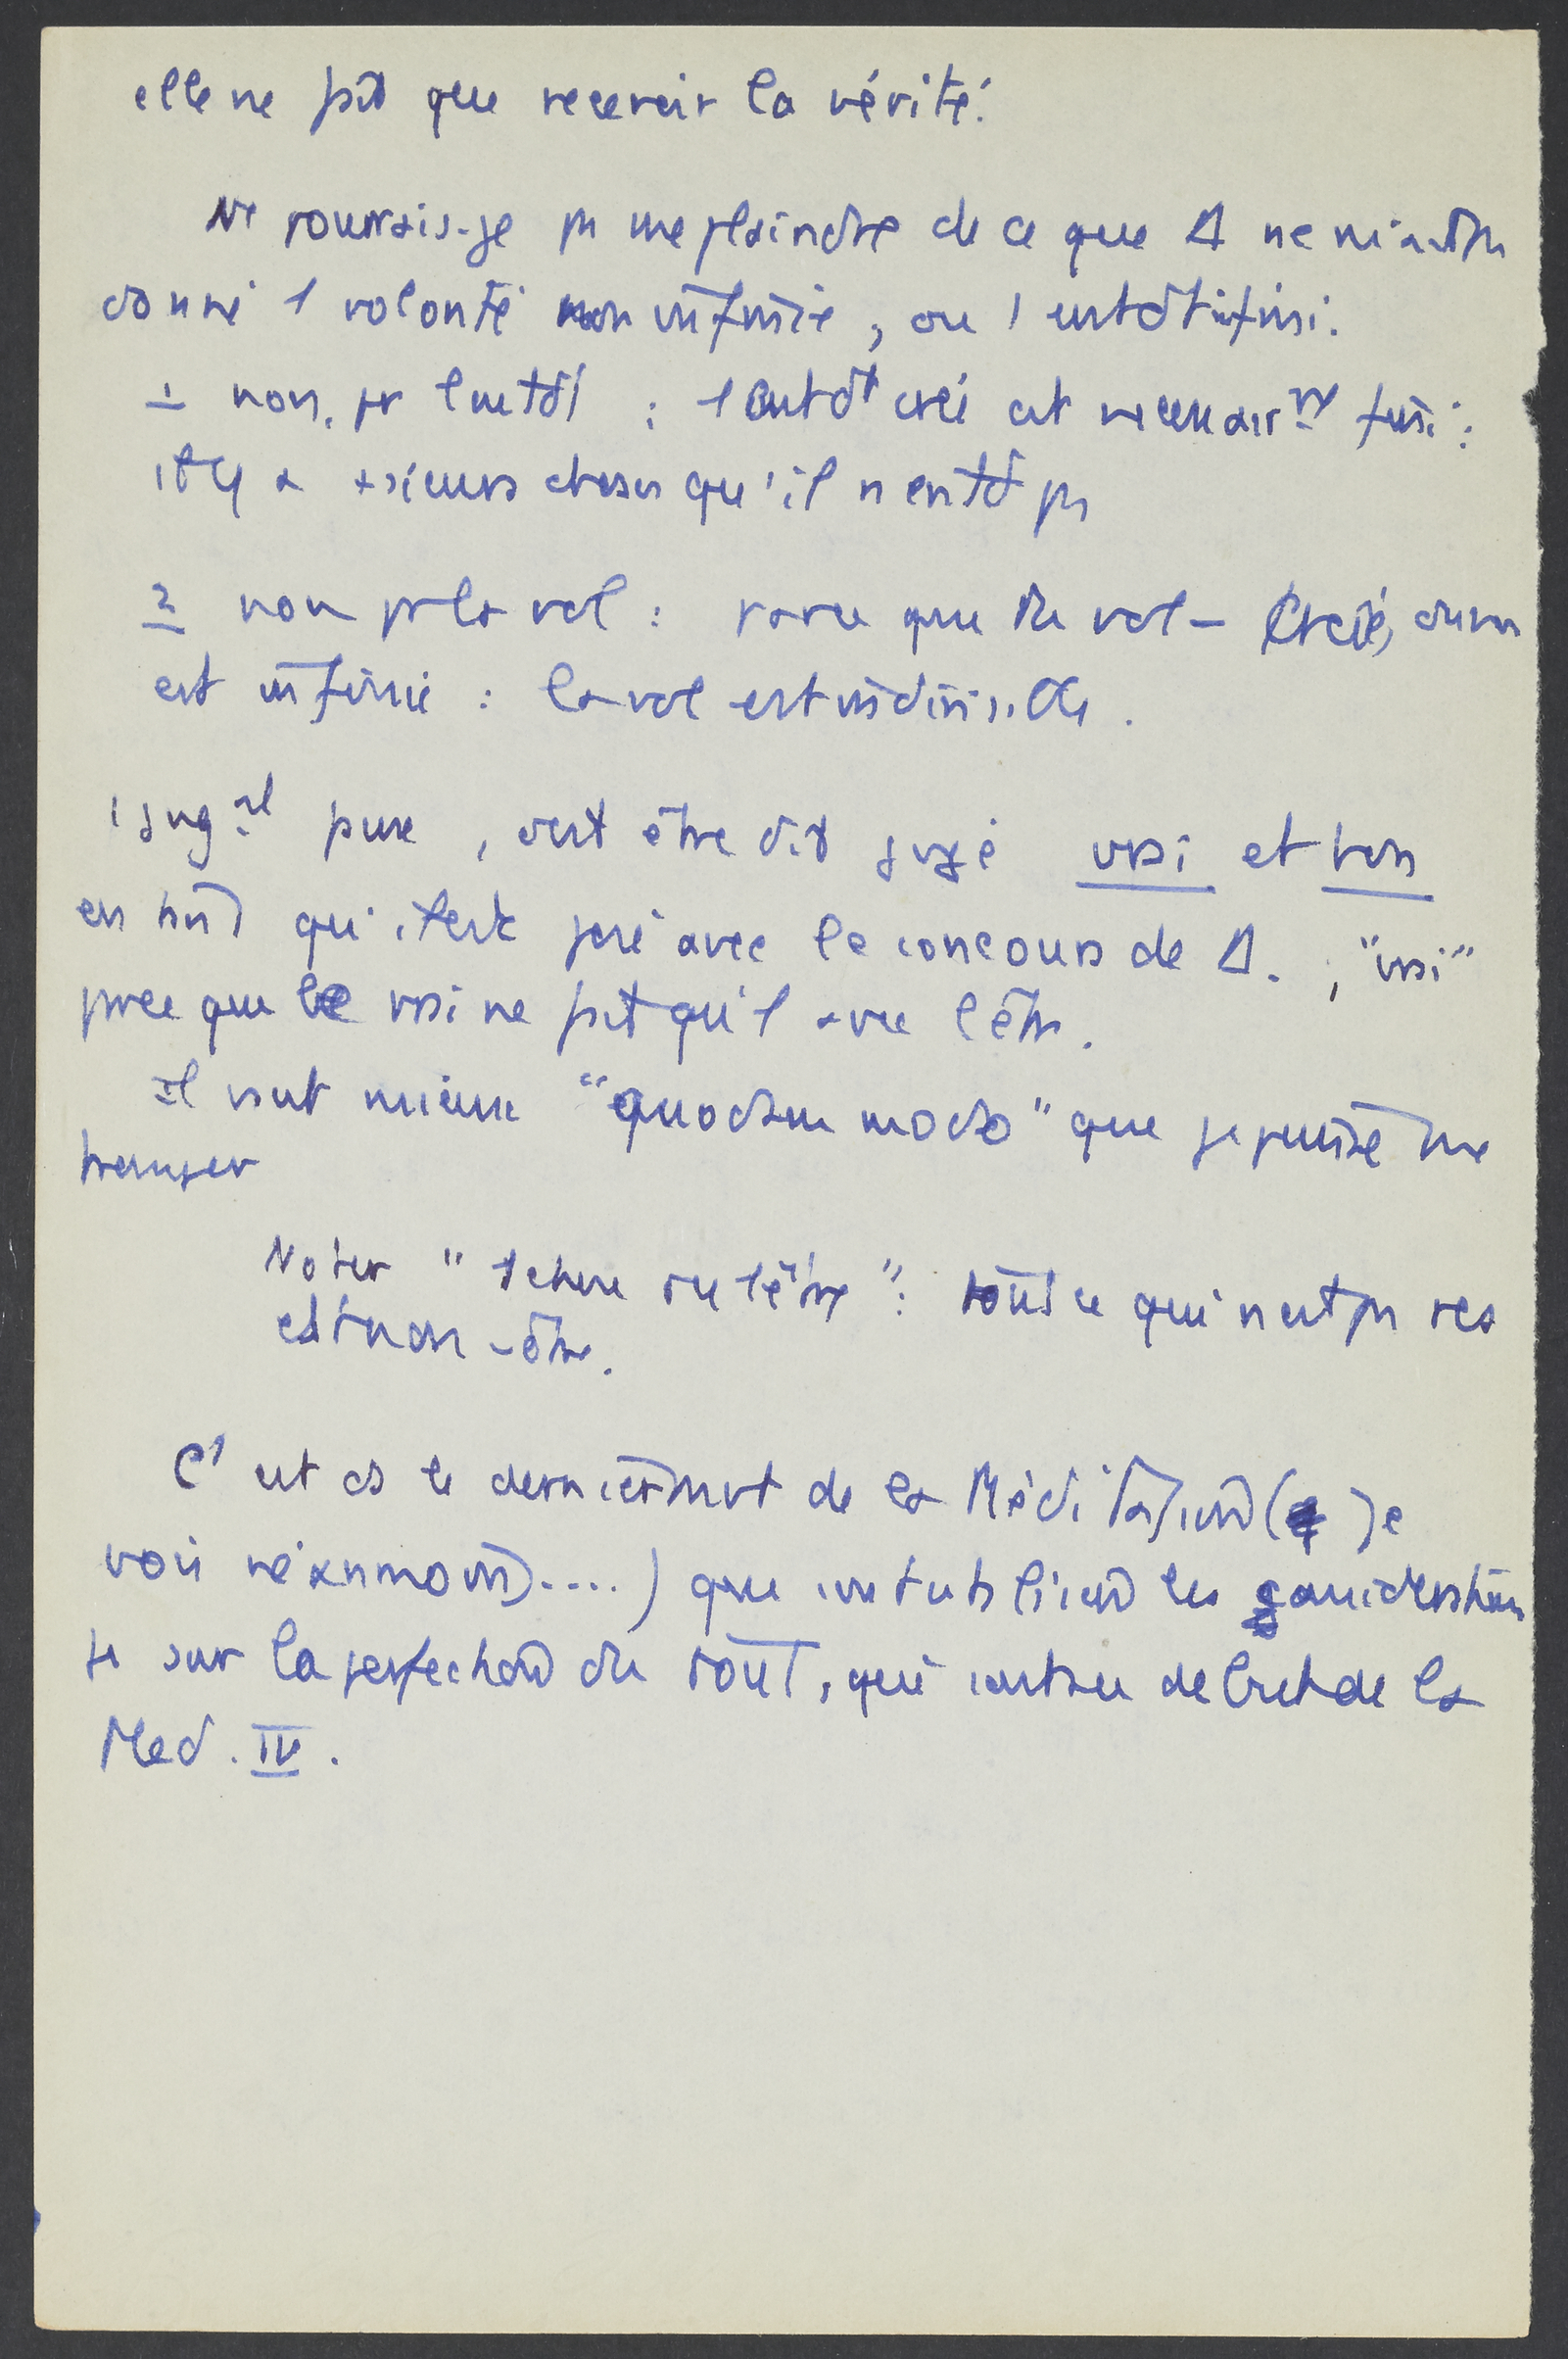 elle ne pt que recevoir la vérité.
Ne pourrais-je ps me plaindre de ce que Δ ne m'ait ps
donné 1 volonté non infinie, ou 1 entdt infini.
1 non, pr l'entdt : 1 entdt créé est nécessairnt fini :
il y a +sieurs choses qu'il n'entd ps
2 non pr la vol : parce que la vol
est infinie : la vol est indivisible.
1 jugnt pure, veut être dit jugé vrai et bon
en tant qu'il est posé avec le concours de Δ. ; "vrai"
parce que le vrai ne fait qu'1 avec l'être.
Il vaut mieux "quodam modo" que je puisse me
tromper
Noter "1 chose ou 1 être" : tout ce qui n'est ps res
est non-être.
C'est ds le dernier mvt de la Méditation (je
vois néanmoins....) que les considérations
sur la perfection du tout, qui de la
Med. IV.